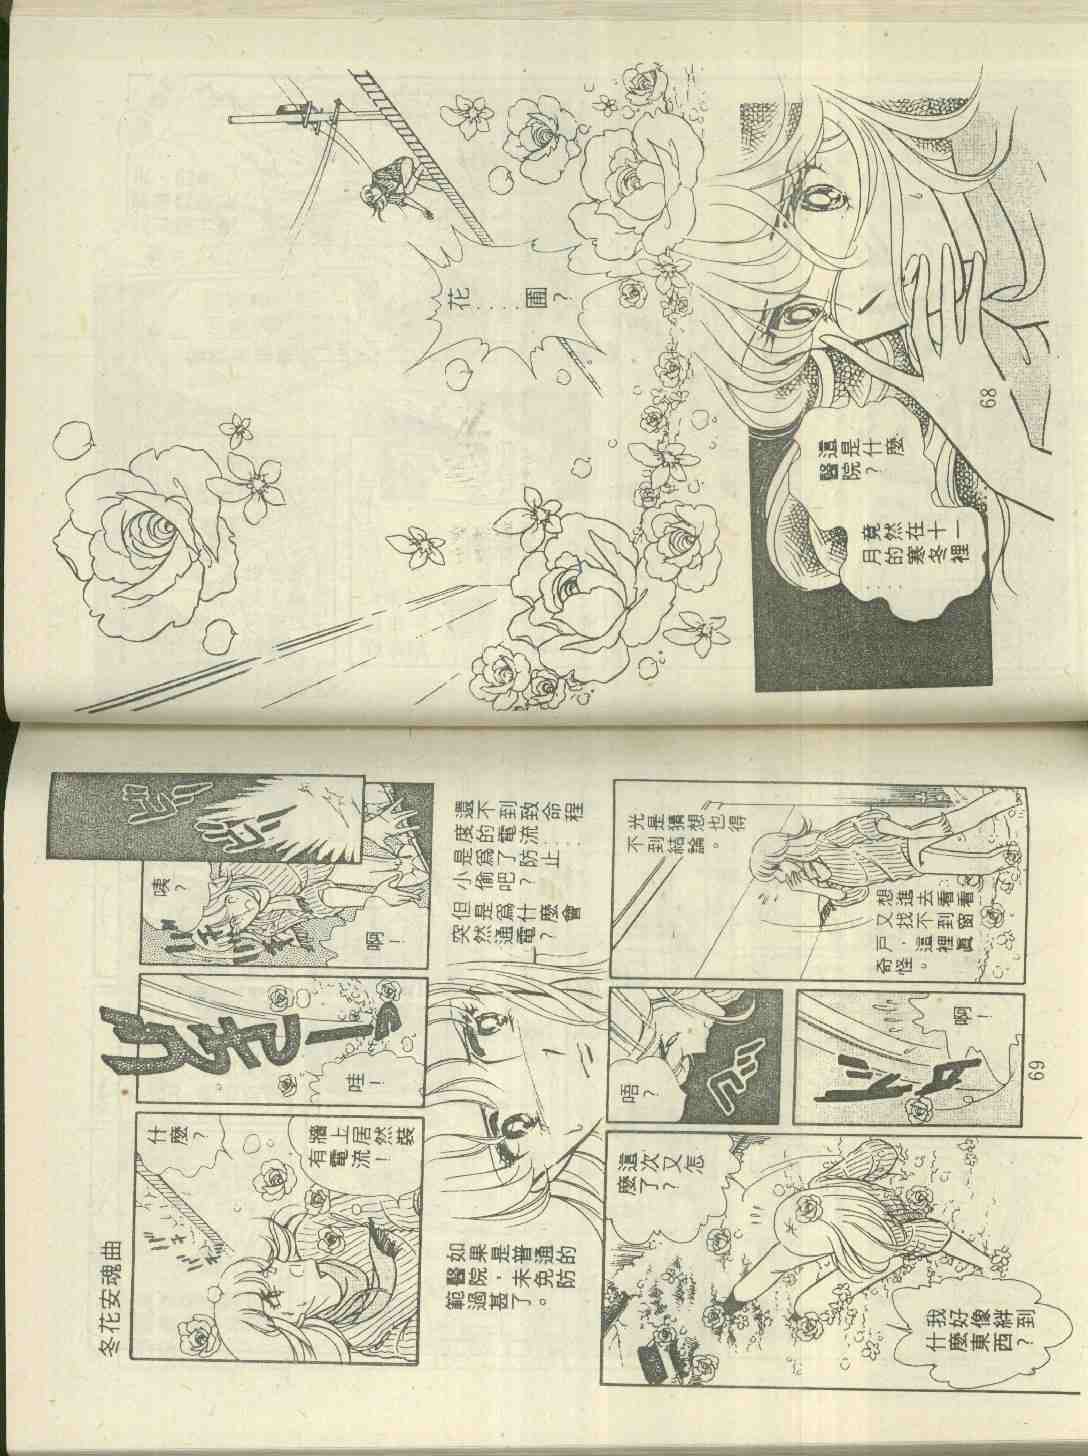 花……圃？
這是什麼
醫院？
竟然在十一
月的寒冬裡
……
68
咦？
啊！
哇！
什麼？
牆上居然裝
有電流！
冬花安魂曲
還不到致命程
度的電流……
是爲了防止
小偷吧？
但是爲什麼會
突然通電？
如果是普通的
醫院，未免防
範過甚了。
光是猜想也得
不到結論。
想進去看看
又找不到窗
戶，這裡眞
奇怪。
唔？
グッ
啊！
ドタ
這次又怎
麼了？
我好像絆到
什麼東西？
69